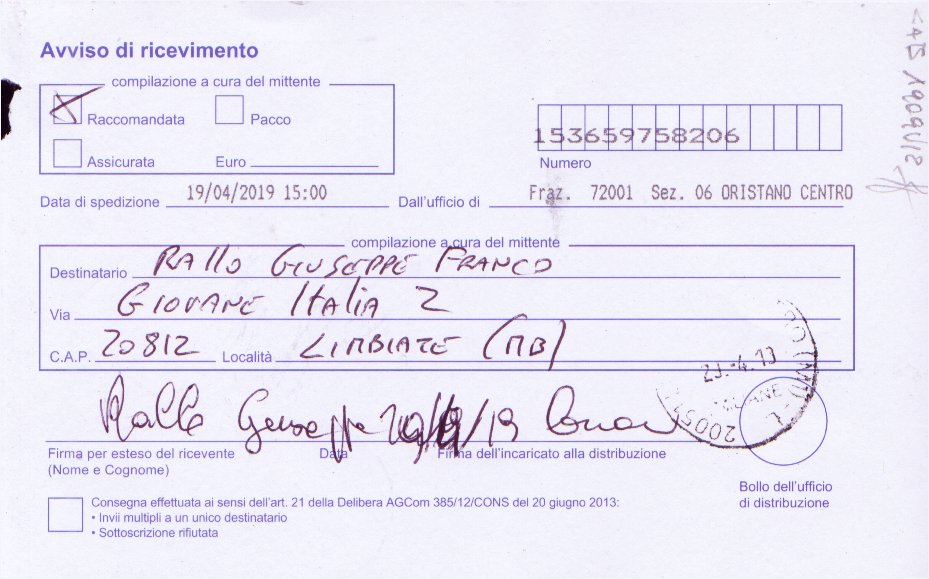 Avviso di ricevimento
compilazione a cura del mittente
Raccomandata Pacco
Assicurata Euro
153659758206
Numero
Data di spedizione 19/04/2019 15:00 Dall'ufficio di Fraz. 72001 Sez. 06 ORISTANO CENTRO
compilazione a cura del mittente
Destinatario RAllo GIUSEPPE FRANCO
Via GIOVANE ItAlIA 2
C.A.P. 20812 Località LIMBIATE (MB)
Rallo Giuseppe
Firma per esteso del ricevente Data Firma dell'incaricato alla distribuzione
(Nome e Cognome)
Bollo dell'ufficio
di distribuzione
Consegna effettuata ai sensi dell'art. 21 della Delibera AGCom 385/12/CONS del 20 giugno 2013:
• Invii multipli a un unico destinatario
• Sottoscrizione rifiutata